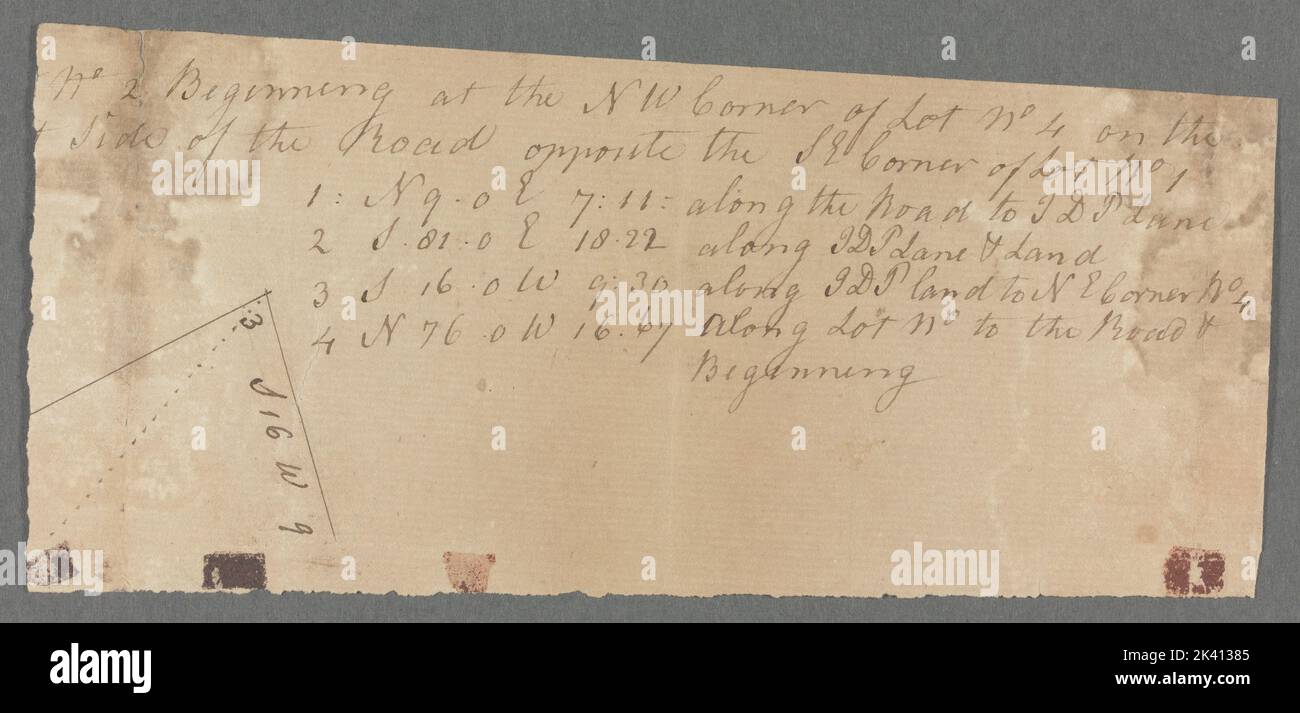 No 2 Beginning at the N W Corner of Lot No 4 on the
Side of the Road opposite the S E Corner of Lot No 1
1: N 9.0 E 7:11: along the Road to J D P Lane
2 S. 81.0 E 18.22 along J D P Lane & Land
3 S 16.0 W 9:30 along J D P land to N E Corner No 4
4 N 76.0 W 16.67 Along Lot No to the Road &
Beginning
3
S 16 W 9
alamy
Image ID: 2K41385
www.alamy.com